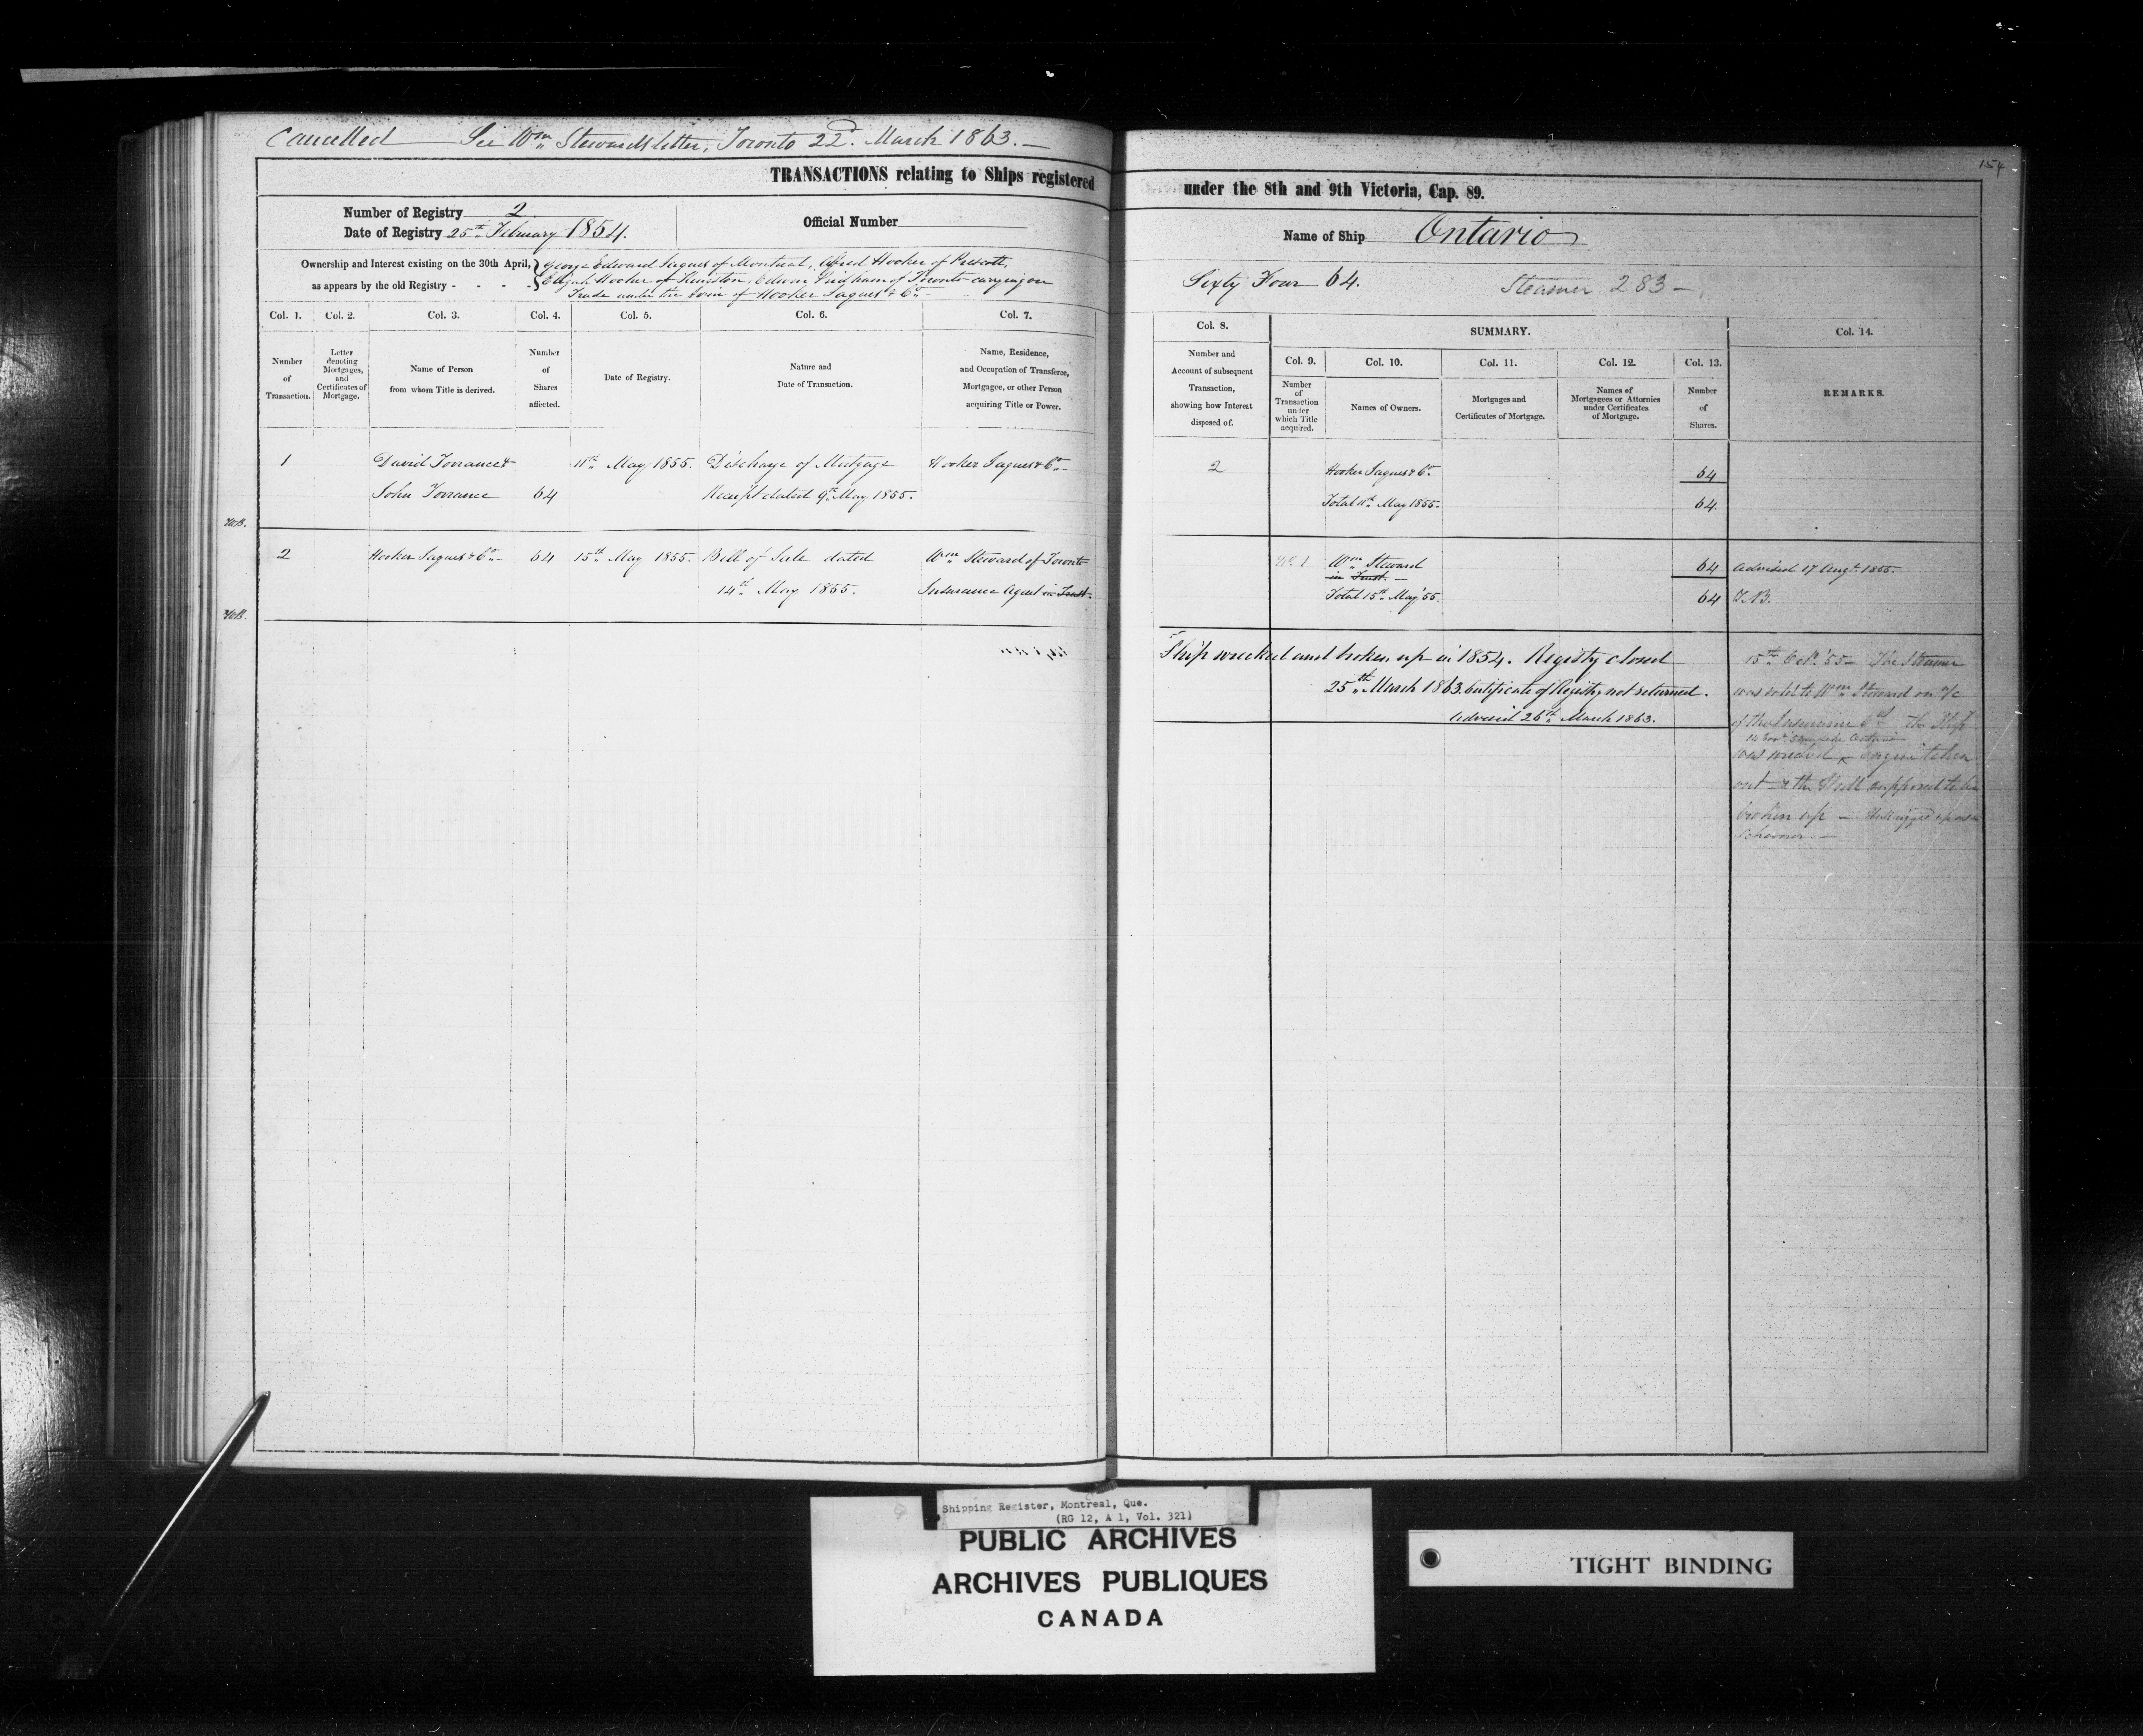 Cancelled — See Wm Stewards letter, Toronto 22d. March 1863. —
154
TRANSACTIONS relating to Ships registered under the 8th and 9th Victoria, Cap. 89.
Number of Registry 2
Date of Registry 25th February 1854.
Official Number
Name of Ship Ontario
Ownership and Interest existing on the 30th April, as appears by the old Registry - - - -
George Edward Jaques of Montreal, Alfred Hooker of Prescott,
Elijah Hooker of Kingston, of Toronto carrying on
Trade under the firm of Hooker Jaques & Co. —
Sixty Four 64.
Steamer 283 —
Col. 1. Col. 2. Col. 3. Col. 4. Col. 5. Col. 6. Col. 7.
Number of Transaction.
Letter denoting Mortgages, and Certificates of Mortgage.
Name of Person from whom Title is derived.
Number of Shares affected.
Date of Registry.
Nature and Date of Transaction.
Name, Residence, and Occupation of Transferee, Mortgagee, or other Person acquiring Title or Power.
Col. 8. SUMMARY. Col. 14.
Col. 9. Col. 10. Col. 11. Col. 12. Col. 13.
Number and Account of subsequent Transaction, showing how Interest disposed of.
Number of Transaction under which Title acquired.
Names of Owners.
Mortgages and Certificates of Mortgage.
Names of Mortgagees or Attornies under Certificates of Mortgage.
Number of Shares.
REMARKS.
1 David Torrance & 11th May 1855. Discharge of Mortgage Hooker Jaques & Co. —
John Torrance 64 Receipt dated 9th May 1855.
2 Hooker Jaques & Co. 64
Total 11th May 1855. 64.
2 Hooker Jaques & Co. — 64 15th May 1855. Bill of Sale dated Wm Steward of Toronto
14th May 1855. Insurance Agent in Trust.
No. 1 Wm Steward 64 Advised 17 Augt. 1855.
in Trust. —
Total 15th May '55. 64 J.B.
Ship wrecked and broken up in 1854. Registry closed
25th March 1863. Certificate of Registry not returned.
Advised 26th March 1863.
15th Oct. '55 — The Steamer
was sold to Wm Steward on a/c
of the Insurance Co. the Ship
was wrecked engine taken
out & the Hull supposed to be
broken up —
schooner. —
Shipping Register, Montreal, Que.
(RG 12, A 1, Vol. 321)
PUBLIC ARCHIVES
ARCHIVES PUBLIQUES
CANADA
TIGHT BINDING